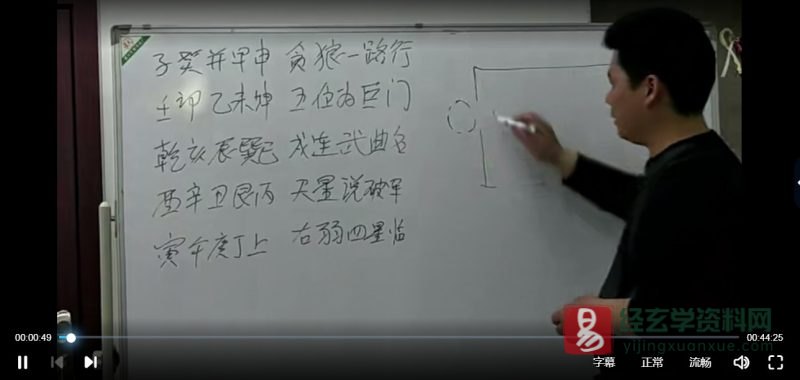 子癸并甲申 贪狼一路行
壬卯乙未坤 五位为巨门
乾亥辰巽巳 戌连武曲名
酉辛丑艮丙 天星说破军
寅午庚丁上 右弼四星临
易 经玄学资料网
yijingxuanxue.com
00:00:49
00:44:25
字幕 正常 流畅